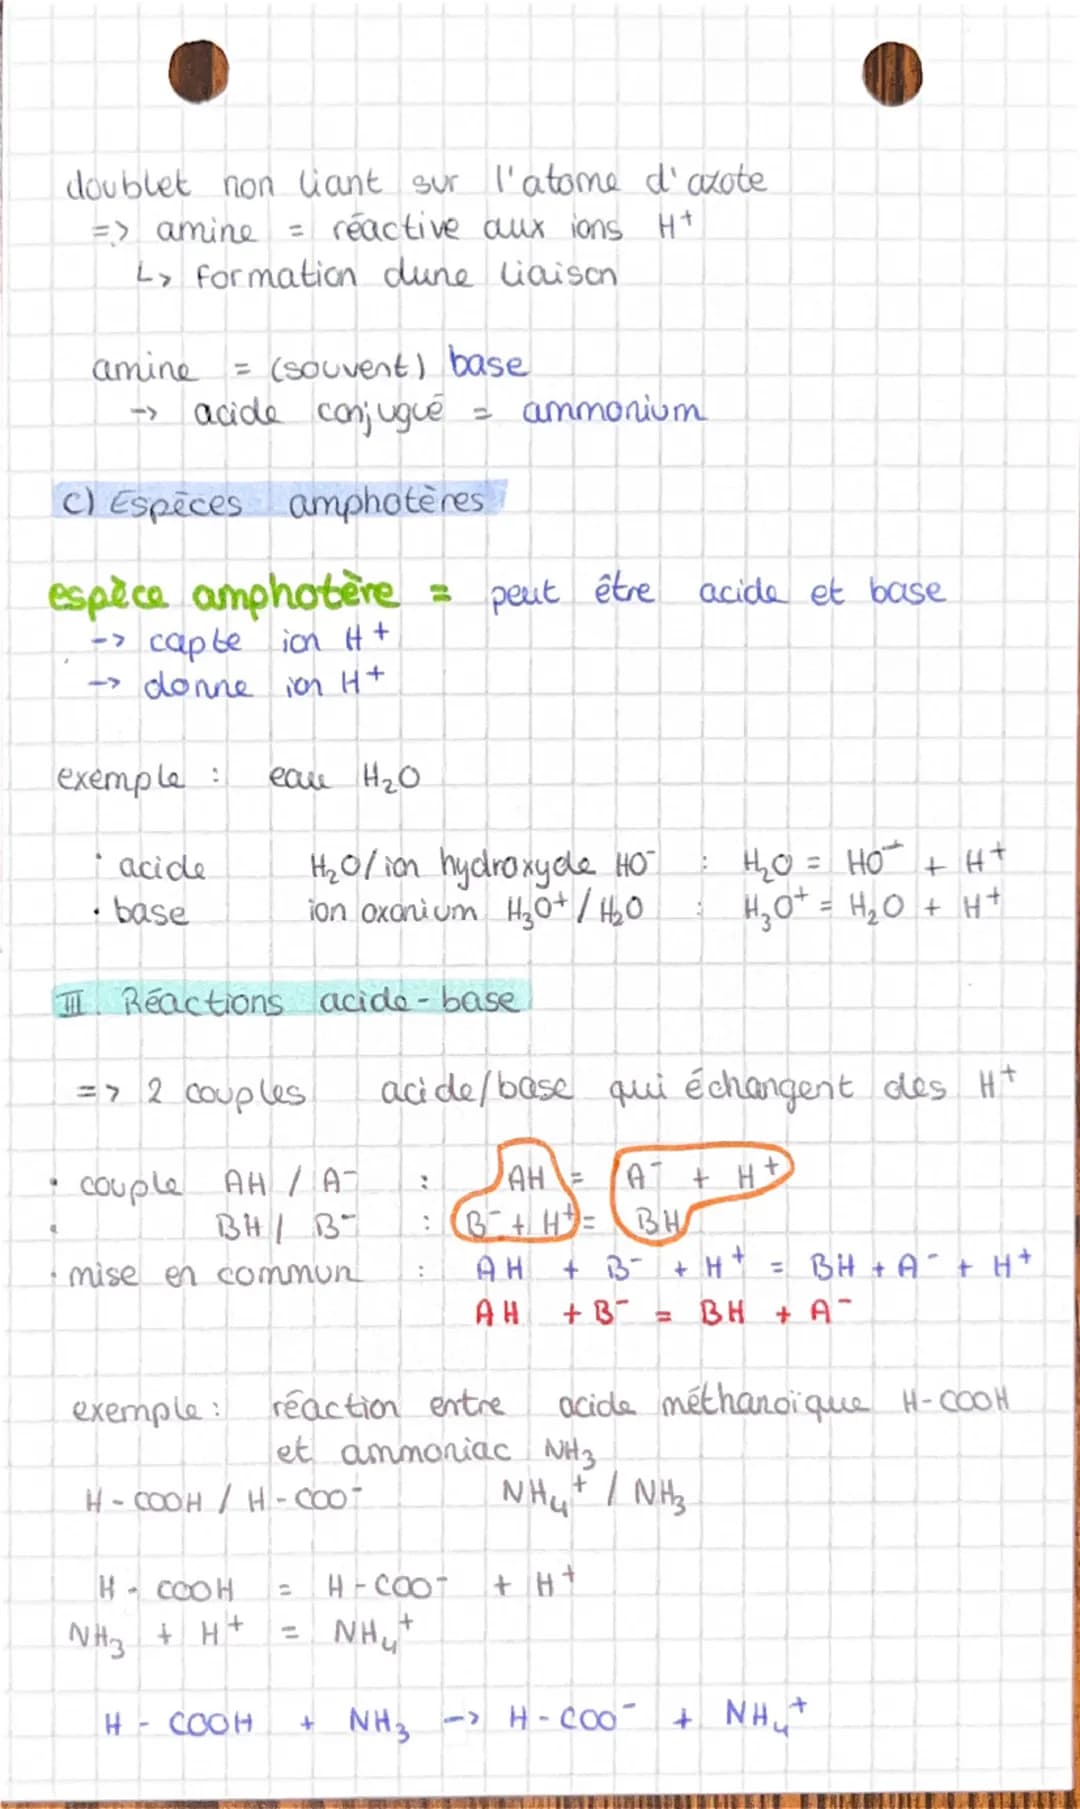 doublet non liant sur l'atome d'azote
=> amine = réactive aux ions H⁺
↳ formation dune liaison
amine = (souvent) base
→ acide conjugué = ammonium
c) Espèces amphotères
espèce amphotère = peut être acide et base
→ capte ion H⁺
→ donne ion H⁺
exemple : eau H₂O
· acide H₂O/ion hydroxyde HO⁻ : H₂O = HO⁻ + H⁺
· base ion oxonium H₃O⁺/H₂O : H₃O⁺ = H₂O + H⁺
III. Réactions acide-base
=> 2 couples acide/base qui échangent des H⁺
· couple AH / A⁻ : AH = A⁻ + H⁺
BH / B⁻ : B⁻ + H⁺ = BH
· mise en commun : AH + B⁻ + H⁺ = BH + A⁻ + H⁺
AH + B⁻ = BH + A⁻
exemple : réaction entre acide méthanoïque H-COOH
et ammoniac NH₃
H-COOH / H-COO⁻ NH₄⁺ / NH₃
H-COOH = H-COO⁻ + H⁺
NH₃ + H⁺ = NH₄⁺
H-COOH + NH₃ → H-COO⁻ + NH₄⁺